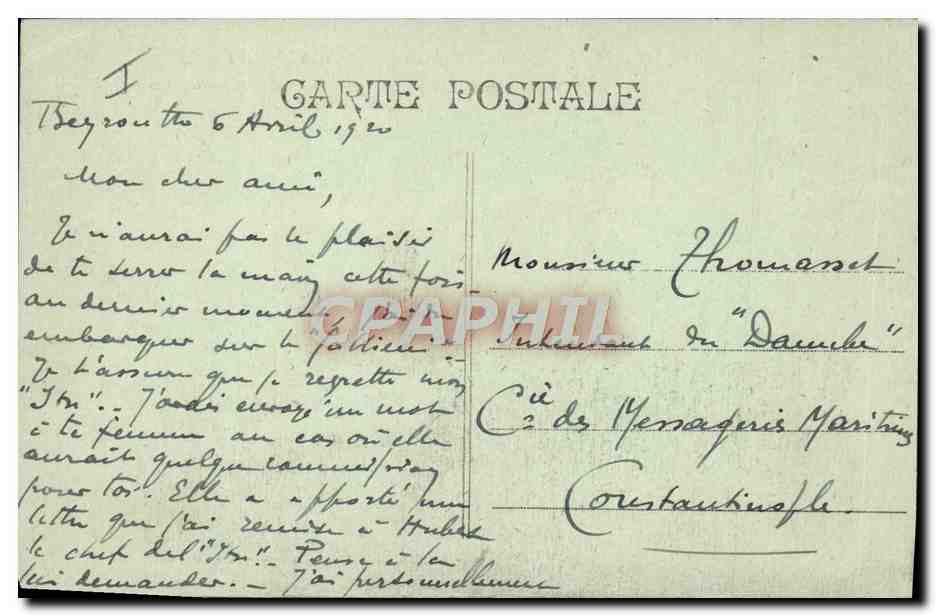 I
CARTE POSTALE
Beyrouth 6 Avril 1920
Mon cher ami,
Je n'aurai pas le plaisir
de te serrer la main cette fois
au dernier moment, j'ai du
embarquer sur le
Je t'assure que je regrette mon
"Itu". - J'avais envoyé un mot
à ta femme au cas où elle
aurait quelque commission
pour toi. Elle a apporté une
lettre que j'ai remise à Hubert
le chef de l'"Itu". - Pense à la
lui demander. - J'ai personnellement
Monsieur Thomasset
Intendant du "Danube"
Cie des Messageries Maritimes
Constantinople.
CPAPHIL